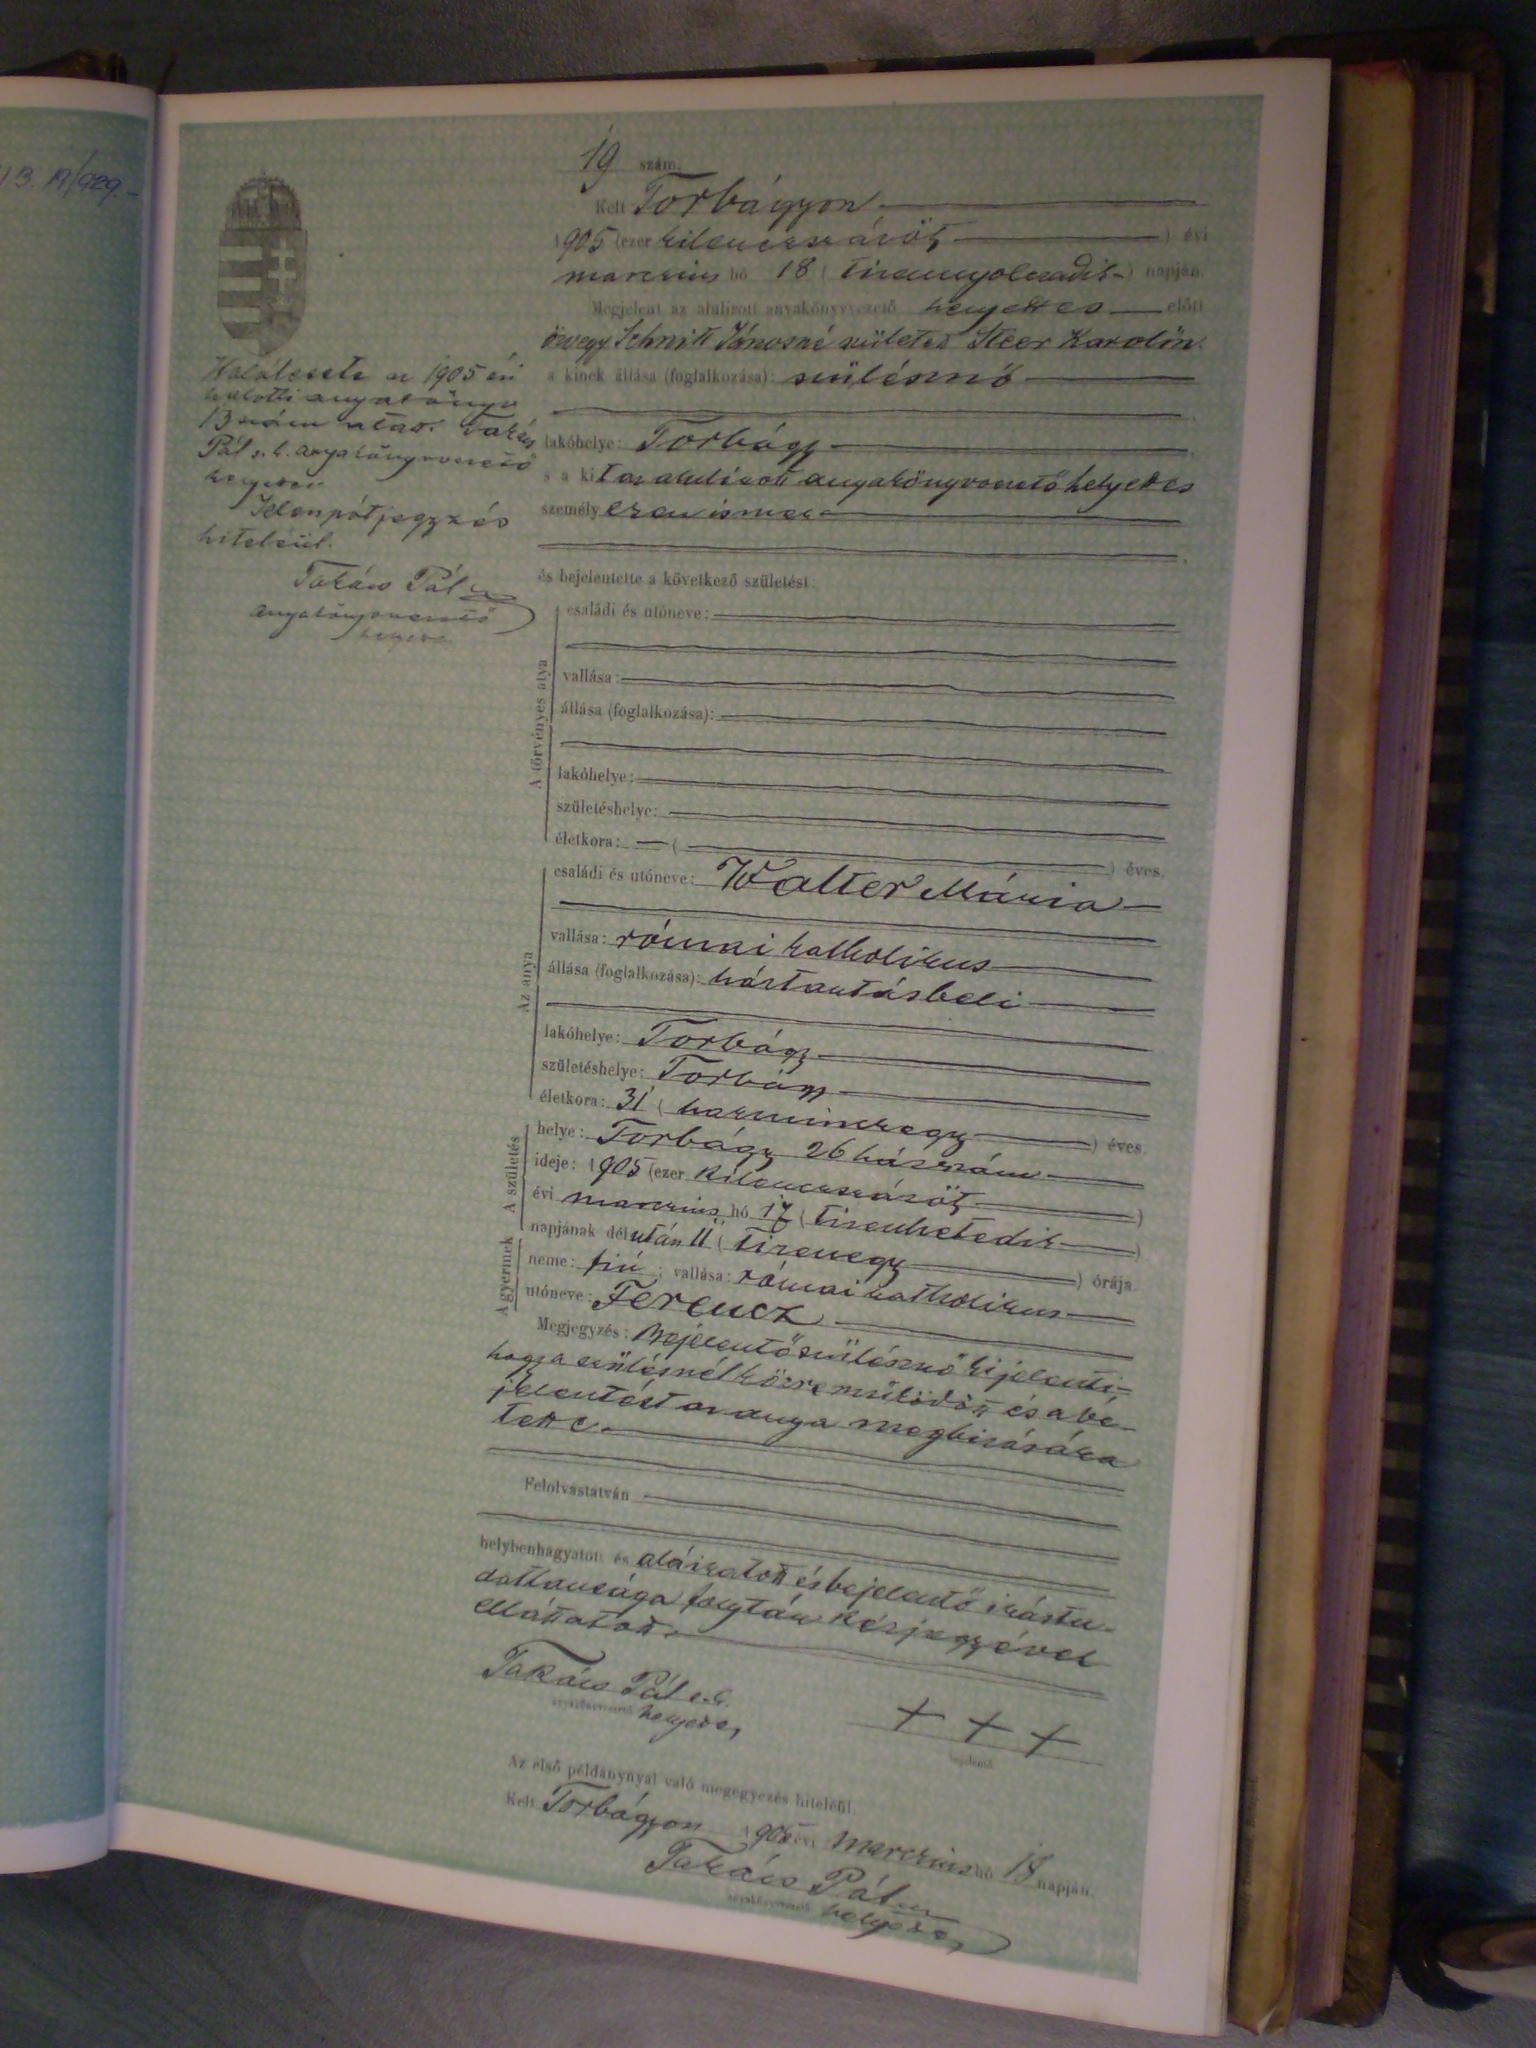 19 szám.
Kelt Torbágyon
1905 (ezer kilenczszázöt) évi
marczius hó 18 (tizennyolczadik) napján.
Megjelent az alulírott anyakönyvvezető helyettes előtt
özvegy Schmitt Jánosné született Steer Karolin
a kinek állása (foglalkozása): szülésznő
lakóhelye: Torbágy
s a kit az alulírott anyakönyvvezető helyettes
személyesen ismer
és bejelentette a következő születést:
A törvényes atya
családi és utóneve:
vallása:
állása (foglalkozása):
lakóhelye:
születéshelye:
életkora: — ( ) éves.
Az anya
családi és utóneve: Walter Mária
vallása: római katholikus
állása (foglalkozása): háztartásbeli
lakóhelye: Torbágy
születéshelye: Torbágy
életkora: 31 (harminczegy) éves.
A születés
helye: Torbágy 26 házszám
ideje: 1905 (ezer kilenczszázöt)
évi marczius hó 17 (tizenhetedik)
napjának délután 11 (tizenegy) órája.
A gyermek
neme: fiú; vallása: római katholikus
utóneve: Ferencz
Megjegyzés: Bejelentő szülésznő kijelenti,
hogy a szülésnél közreműködött és a be-
jelentést az anya megbizására
tette.
Felolvastatván
helybenhagyatott és aláiratott és bejelentő irástu-
datlansága folytán kézjegyével
elláttatott.
Takács Pál s.k.
anyakönyvvezető helyettes
+ + +
bejelentő
Az első példánynyal való megegyezés hiteléül.
Kelt Torbágyon 1905 évi marczius hó 18 napján.
Takács Pál
anyakönyvvezető helyettes
Halálesete az 1905 évi
halotti anyakönyv
13 szám alatt. Takács
Pál s.k. anyakönyvvezető
helyettes
Jelen pótjegyzés
hiteléül.
Takács Pál
anyakönyvvezető
helyettes